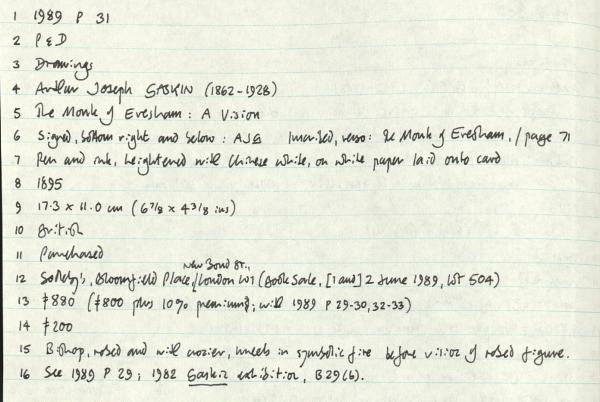 1 1989 P 31
2 P & D
3 Drawings
4 Arthur Joseph GASKIN (1862-1928)
5 The Monk of Evesham: A Vision
6 Signed, bottom right and below: AJG Inscribed, verso: The Monk of Evesham, / page 71
7 Pen and ink, heightened with Chinese white, on white paper laid onto card
8 1895
9 17.3 x 11.0 cm (6 7/8 x 4 3/8 ins)
10 British
11 Purchased
New Bond St.,
12 Sotheby's, Bloomfield Place, / London W1 (Book Sale, [1 and] 2 June 1989, lot 504)
13 £880 (£800 plus 10% premium; with 1989 P 29-30, 32-33)
14 £200
15 Bishop, robed and with crozier, kneels in symbolic fire before vision of robed figure.
16 See 1989 P 29; 1982 Gaskin exhibition, B29(6).